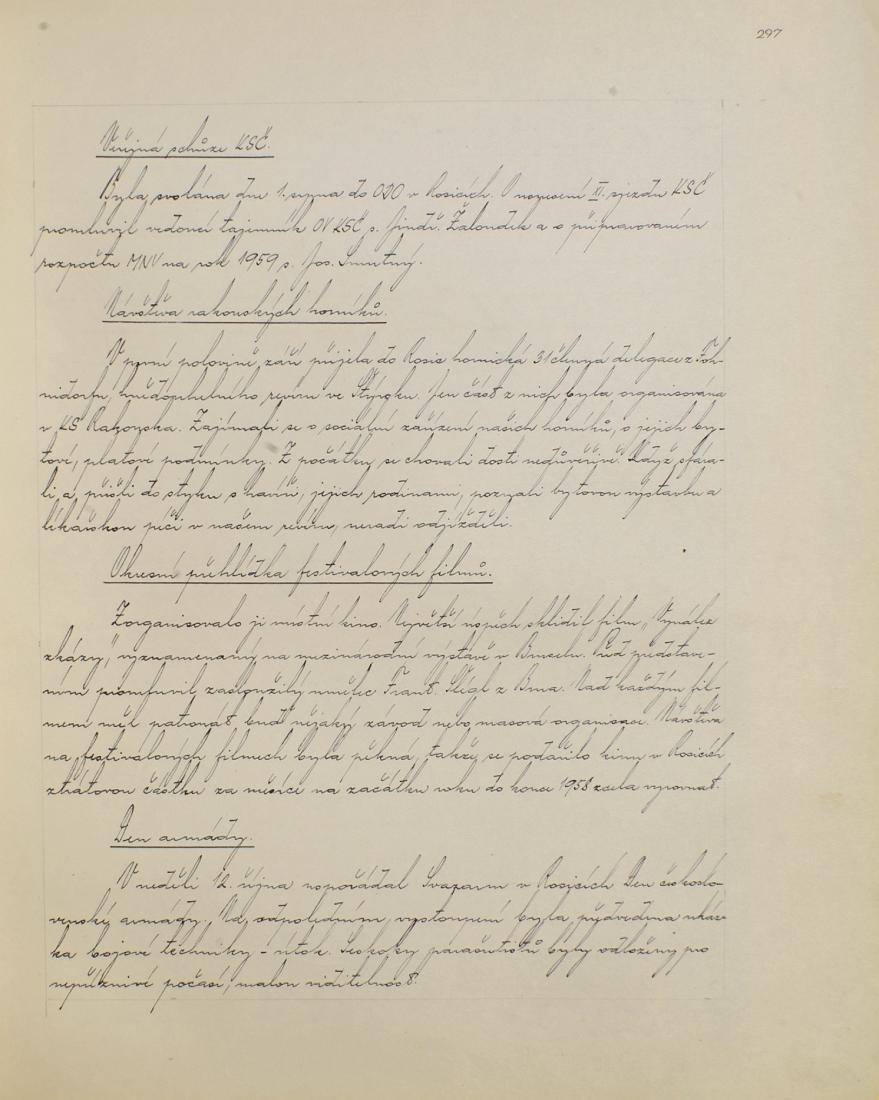 297
Veřejná schůze KSČ.
Byla svolána dne 1. srpna do OÚO v Rosicích. O usnesení XI. sjezdu KSČ
promluvil vedoucí tajemník OV KSČ s. Jindř. Žaloudek a o připravovaném
rozpočtu MNV na rok 1959 s. Jos. Smutný.
Návštěva rakouských horníků.
V první polovině září přijela do Rosic hornická 31členná delegace z Foh-
nsdorfu, hnědouhelného revíru ve Štýrsku. Jen část z nich byla organisována
v KS Rakouska. Zajímali se o sociální zařízení našich horníků, o jejich by-
tové, platové podmínky. Z počátku se chovali dosti nedůvěřivě. Když sfára-
li a přišli do styku s havíři, jejich rodinami, poznali bytovou výstavbu a
lékařskou péči v našem revíru, neradi odjížděli.
Okresní přehlídka festivalových filmů.
Zorganisovalo ji místní kino. Největší úspěch sklidil film „Vynález
zkázy", vyznamenaný na mezinárodní výstavě v Bruselu. Před představe-
ním promluvil zasloužilý umělec Frant. z Brna. Nad každým fil-
mem měl patronát buď nějaký závod nebo masová organisace. Návštěva
na festivalových filmech byla pěkná, takže se podařilo kinu v Rosicích
ztrátovou částku za měsíce na začátku roku do konce 1958 zcela vyrovnat.
Den armády.
V neděli 12. října uspořádal Svazarm v Rosicích Den českoslo-
venské armády. Na odpoledním vystoupení byla předvedena ukáz-
ka bojové techniky - útok. Seskoky parašutistů byly odloženy pro
nepříznivé počasí, malou viditelnost.